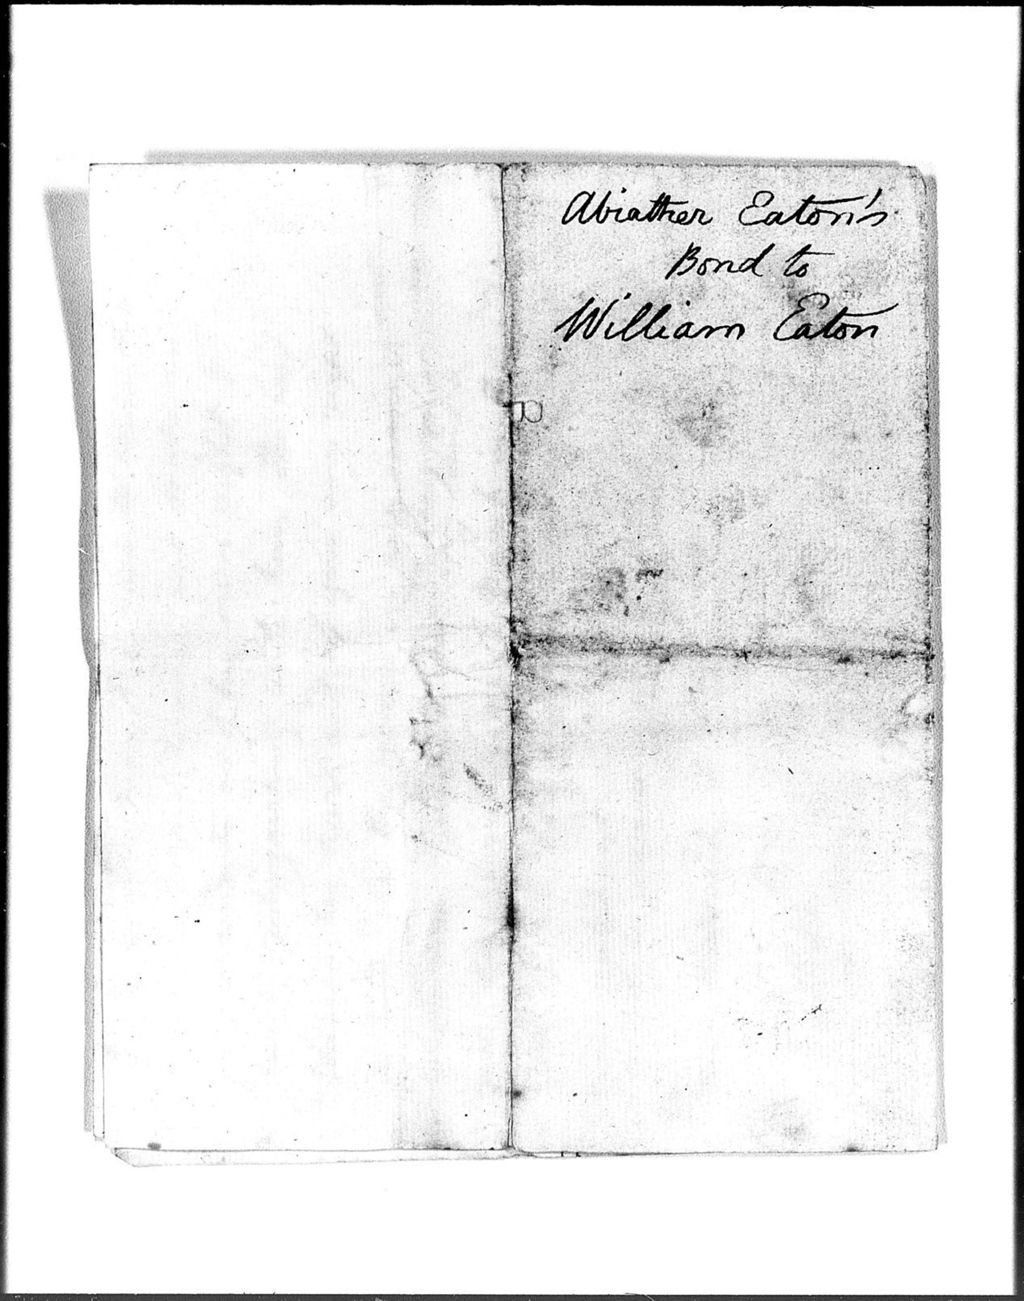 Abiather Eaton's
Bond to
William Eaton